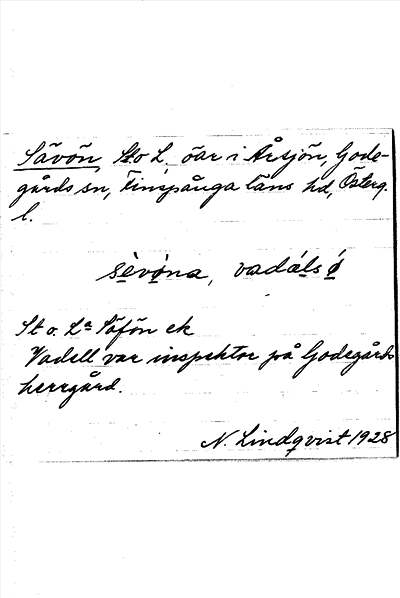 Sävön, St. o L. öar i Årsjön, Gode-
gårds sn, Finspånga läns hd, Österg.
l.
sèvǿna, vadálsǿ
St o. La Söfön ek
Vadell var inspektor på Godegårds
herrgård.
N. Lindqvist 1928